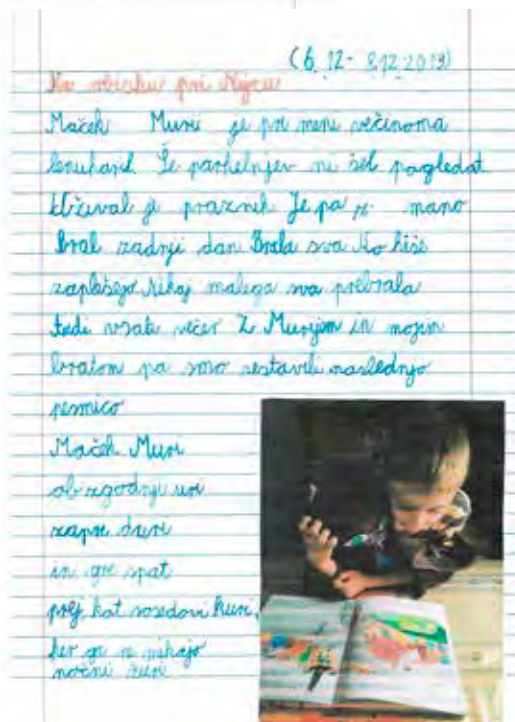 (6. 12 - 8. 12. 2019)
Na obisku pri Nejcu
Maček Muri je pri meni večinoma
lenuharil. Še parkeljnov ni šel pogledat
je praznik Je pa z mano
bral zadnji dan Brala sva Ko hiše
zaplešejo Nekaj malega sva prebrala
tudi vsak večer Z Murijem in mojim
bratom pa smo sestavili naslednjo
pesmico
Maček Muri
ob zgodnji uri
zapre duri
in gre spat
prej kot sosedovi kuri,
ker ga ne mikajo
nočni žuri